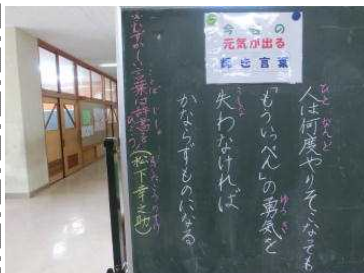 今日の
元気が出る
言葉
人は何度やりそこなっても
「もういっぺん」の勇気を
失わなければ
かならずものになる
むずかしい言葉は辞書
(松下幸之助)